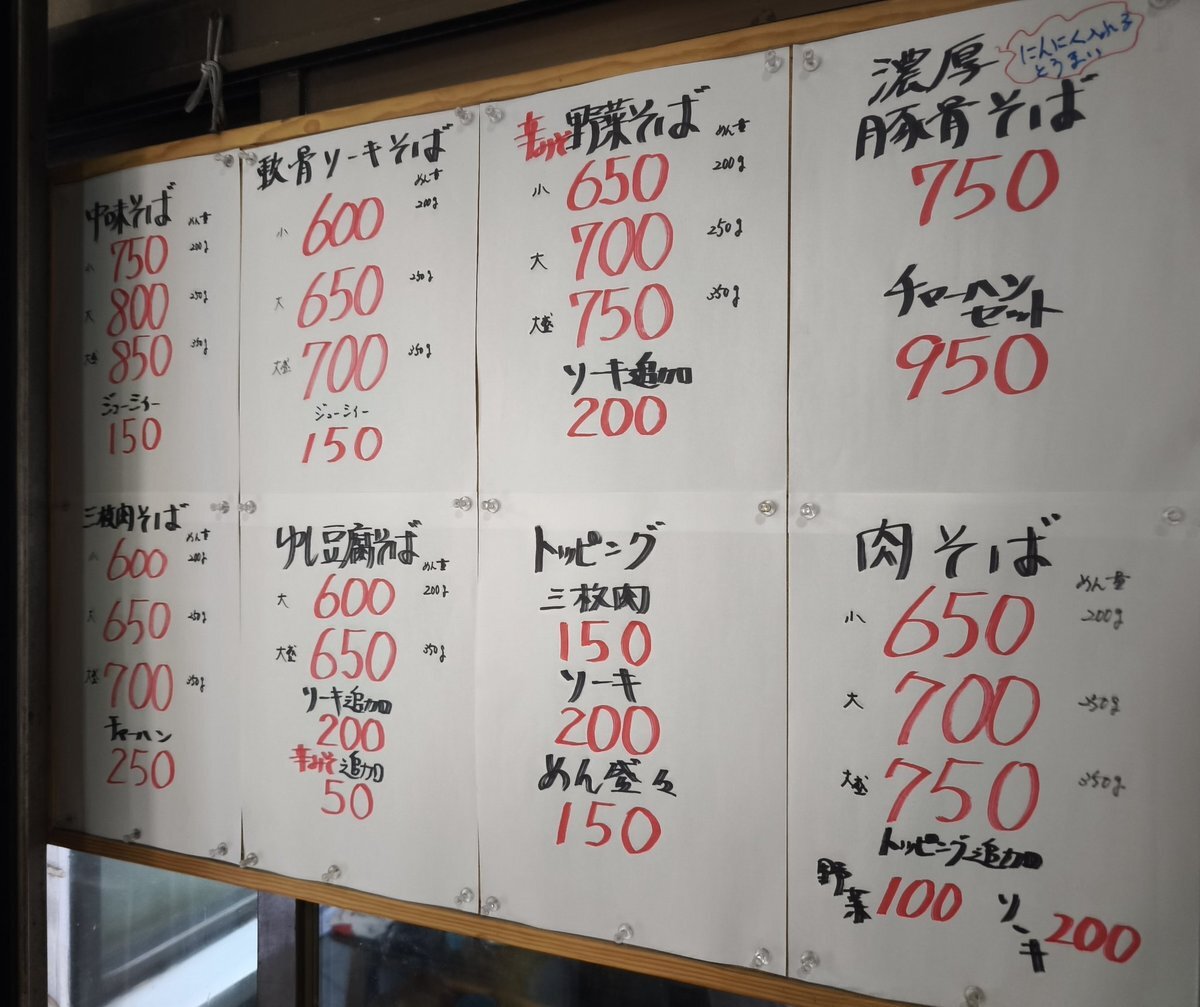 中味そば
めん量
小 750 200g
大 800 250g
大盛 850 350g
ジューシィー
150
軟骨ソーキそば
めん量
小 600 200g
大 650 250g
大盛 700 350g
ジューシィー
150
辛みそ野菜そば
めん量
小 650 200g
大 700 250g
大盛 750 350g
ソーキ追加
200
濃厚
にんにく入れる
とうまい
豚骨そば
750
チャーハン
セット
950
三枚肉そば
めん量
小 600 200g
大 650 250g
大盛 700 350g
チャーハン
250
ゆし豆腐そば
めん量
大 600 200g
大盛 650 350g
ソーキ追加
200
辛みそ追加
50
トッピング
三枚肉
150
ソーキ
200
めん
150
肉そば
めん量
小 650 200g
大 700 250g
大盛 750 350g
トッピング追加
野菜 100 ソーキ 200